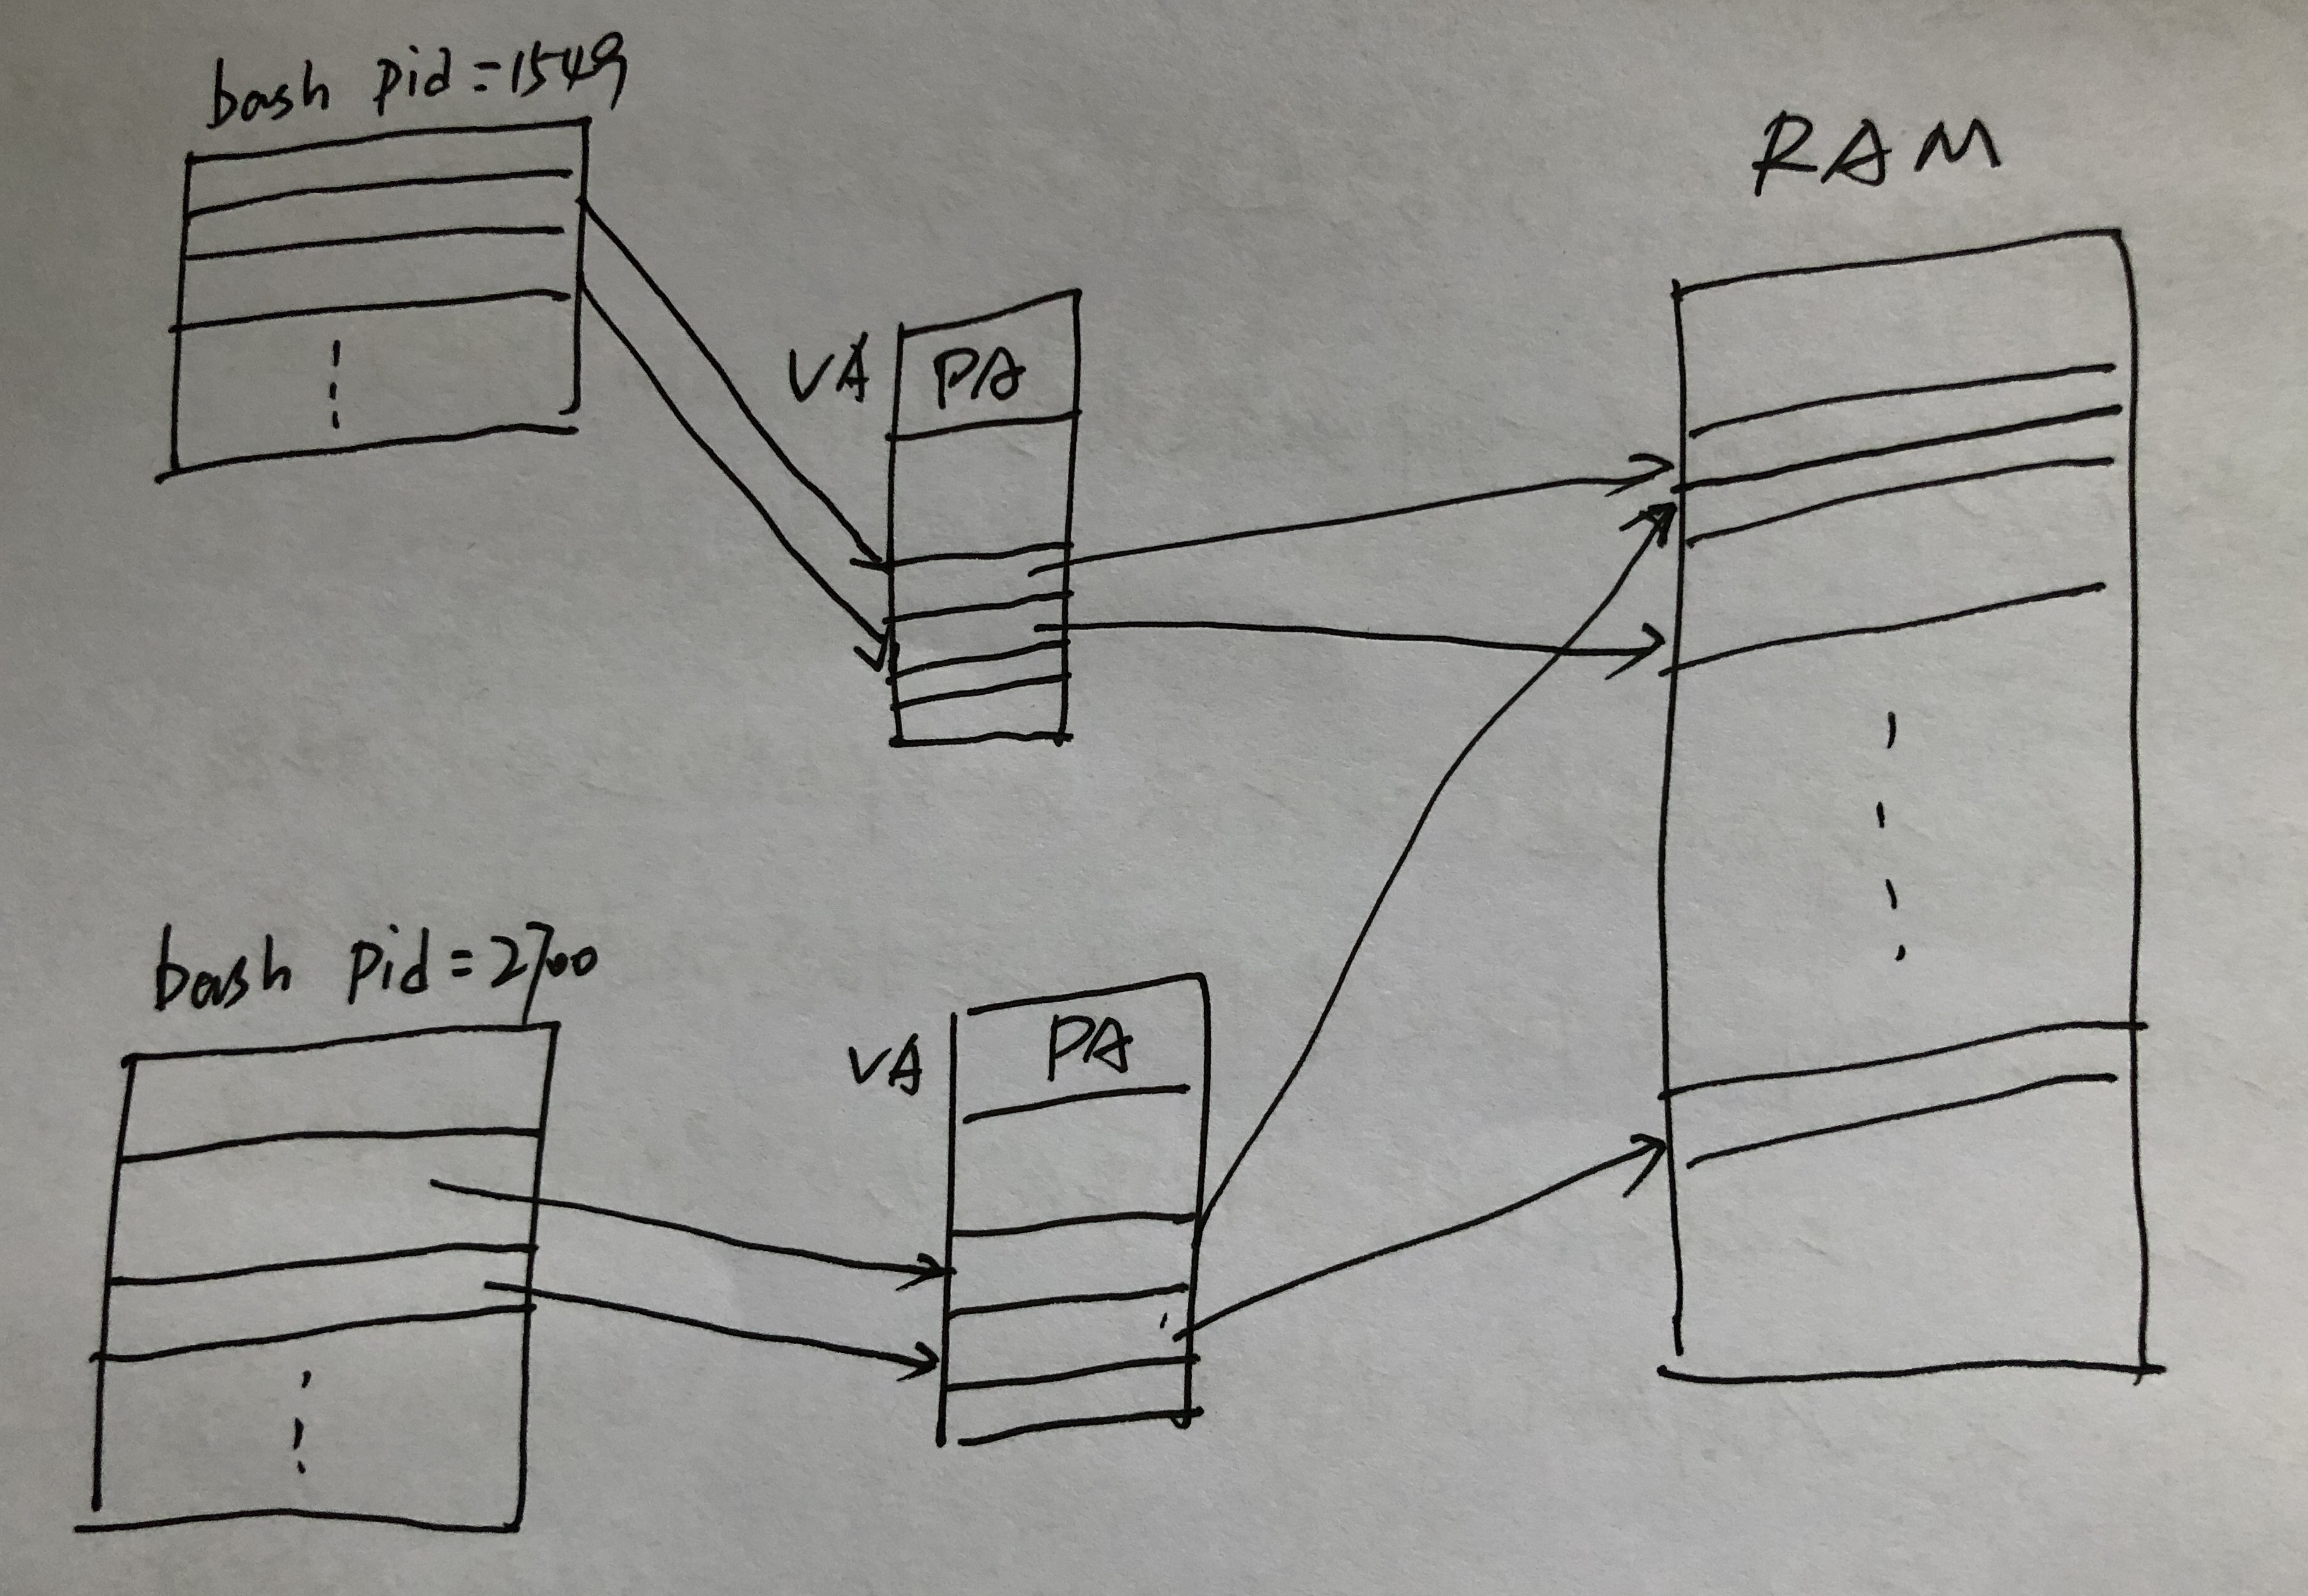 bash pid=1549
RAM
VA PA
bash pid=2700
VA PA